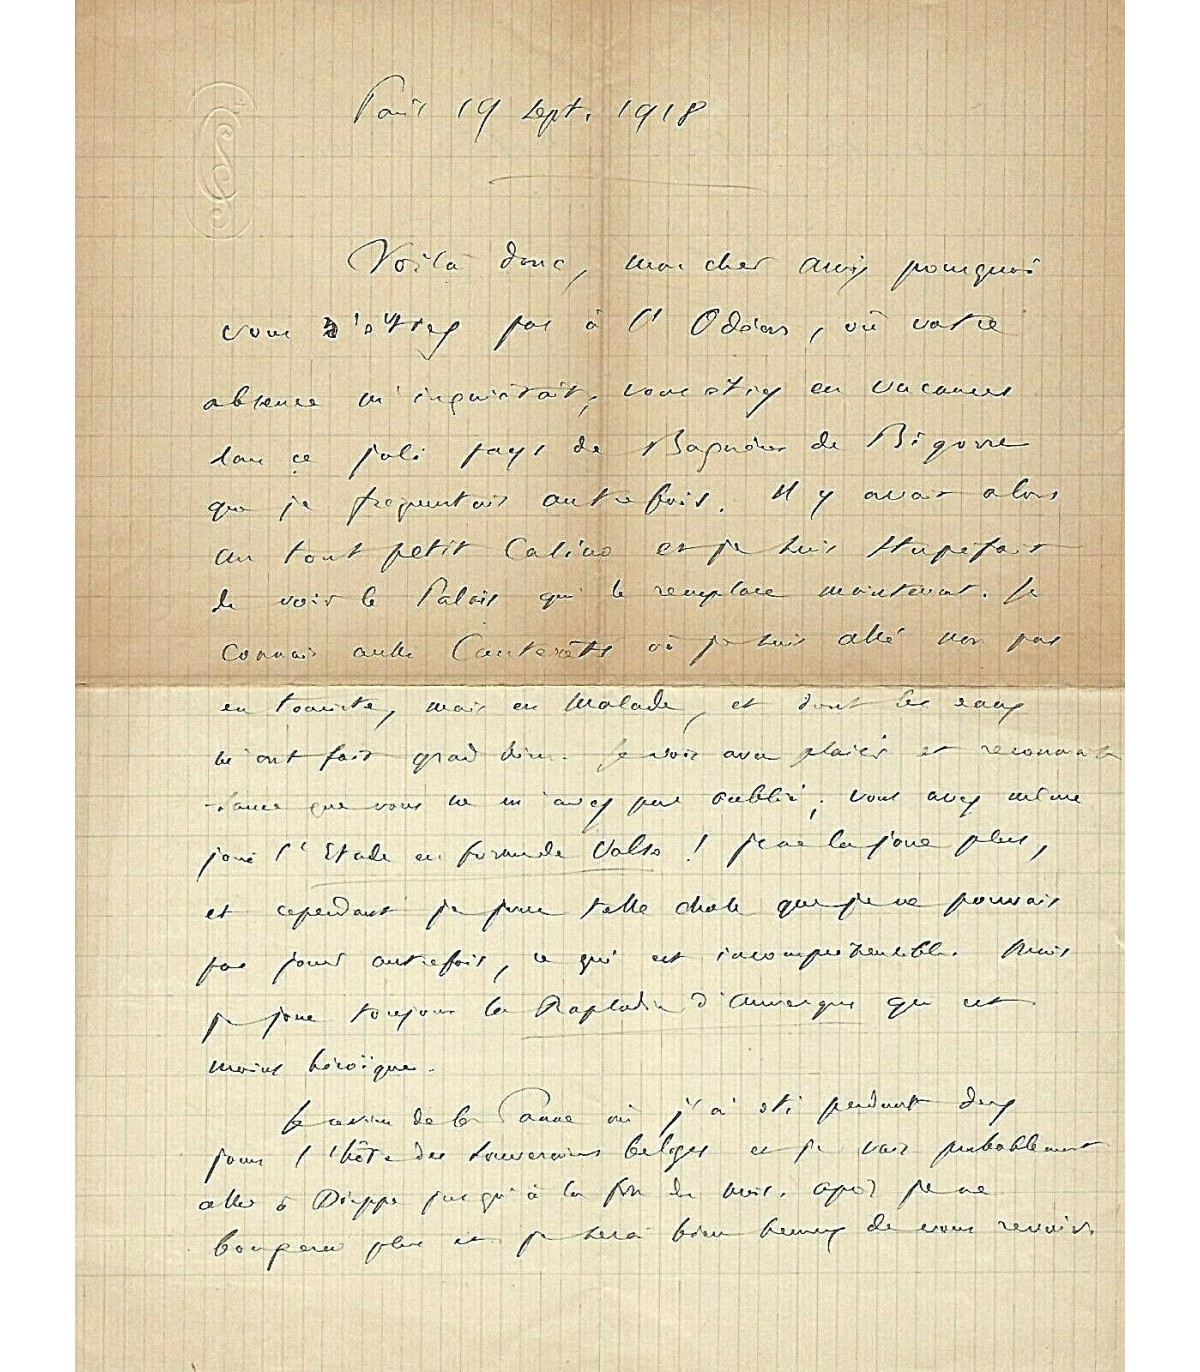 Paris 19 sept. 1918
Voilà donc, mon cher ami, pourquoi
vous n'étiez pas à l'Odéon, où votre
absence m'inquiétait; vous étiez en vacances
dans ce joli pays de Bagnères de Bigorre
que je fréquentais autrefois. Il y avait alors
un tout petit Casino et je suis stupéfait
de voir le Palais qui le remplace maintenant. Je
connais aussi Cauterets où je suis allé non pas
en touriste, mais en malade, et dont les eaux
m'ont fait grand bien. Je vois avec plaisir et reconnais
-sance que vous ne m'avez pas oublié; vous avez même
joué l'Etude en forme de Valse! je ne la joue plus,
et cependant je joue telle chose que je ne pouvais
pas jouer autrefois, ce qui est incompréhensible. Mais
je joue toujours la Rapsodie d'Auvergne qui est
moins héroïque.
Je reviens de la Panne où j'ai été pendant deux
jours l'hôte des souverains belges et je vais probablement
aller à Dieppe jusqu'à la fin du mois. après je ne
bougerai plus et je serai bien heureux de vous revoir.